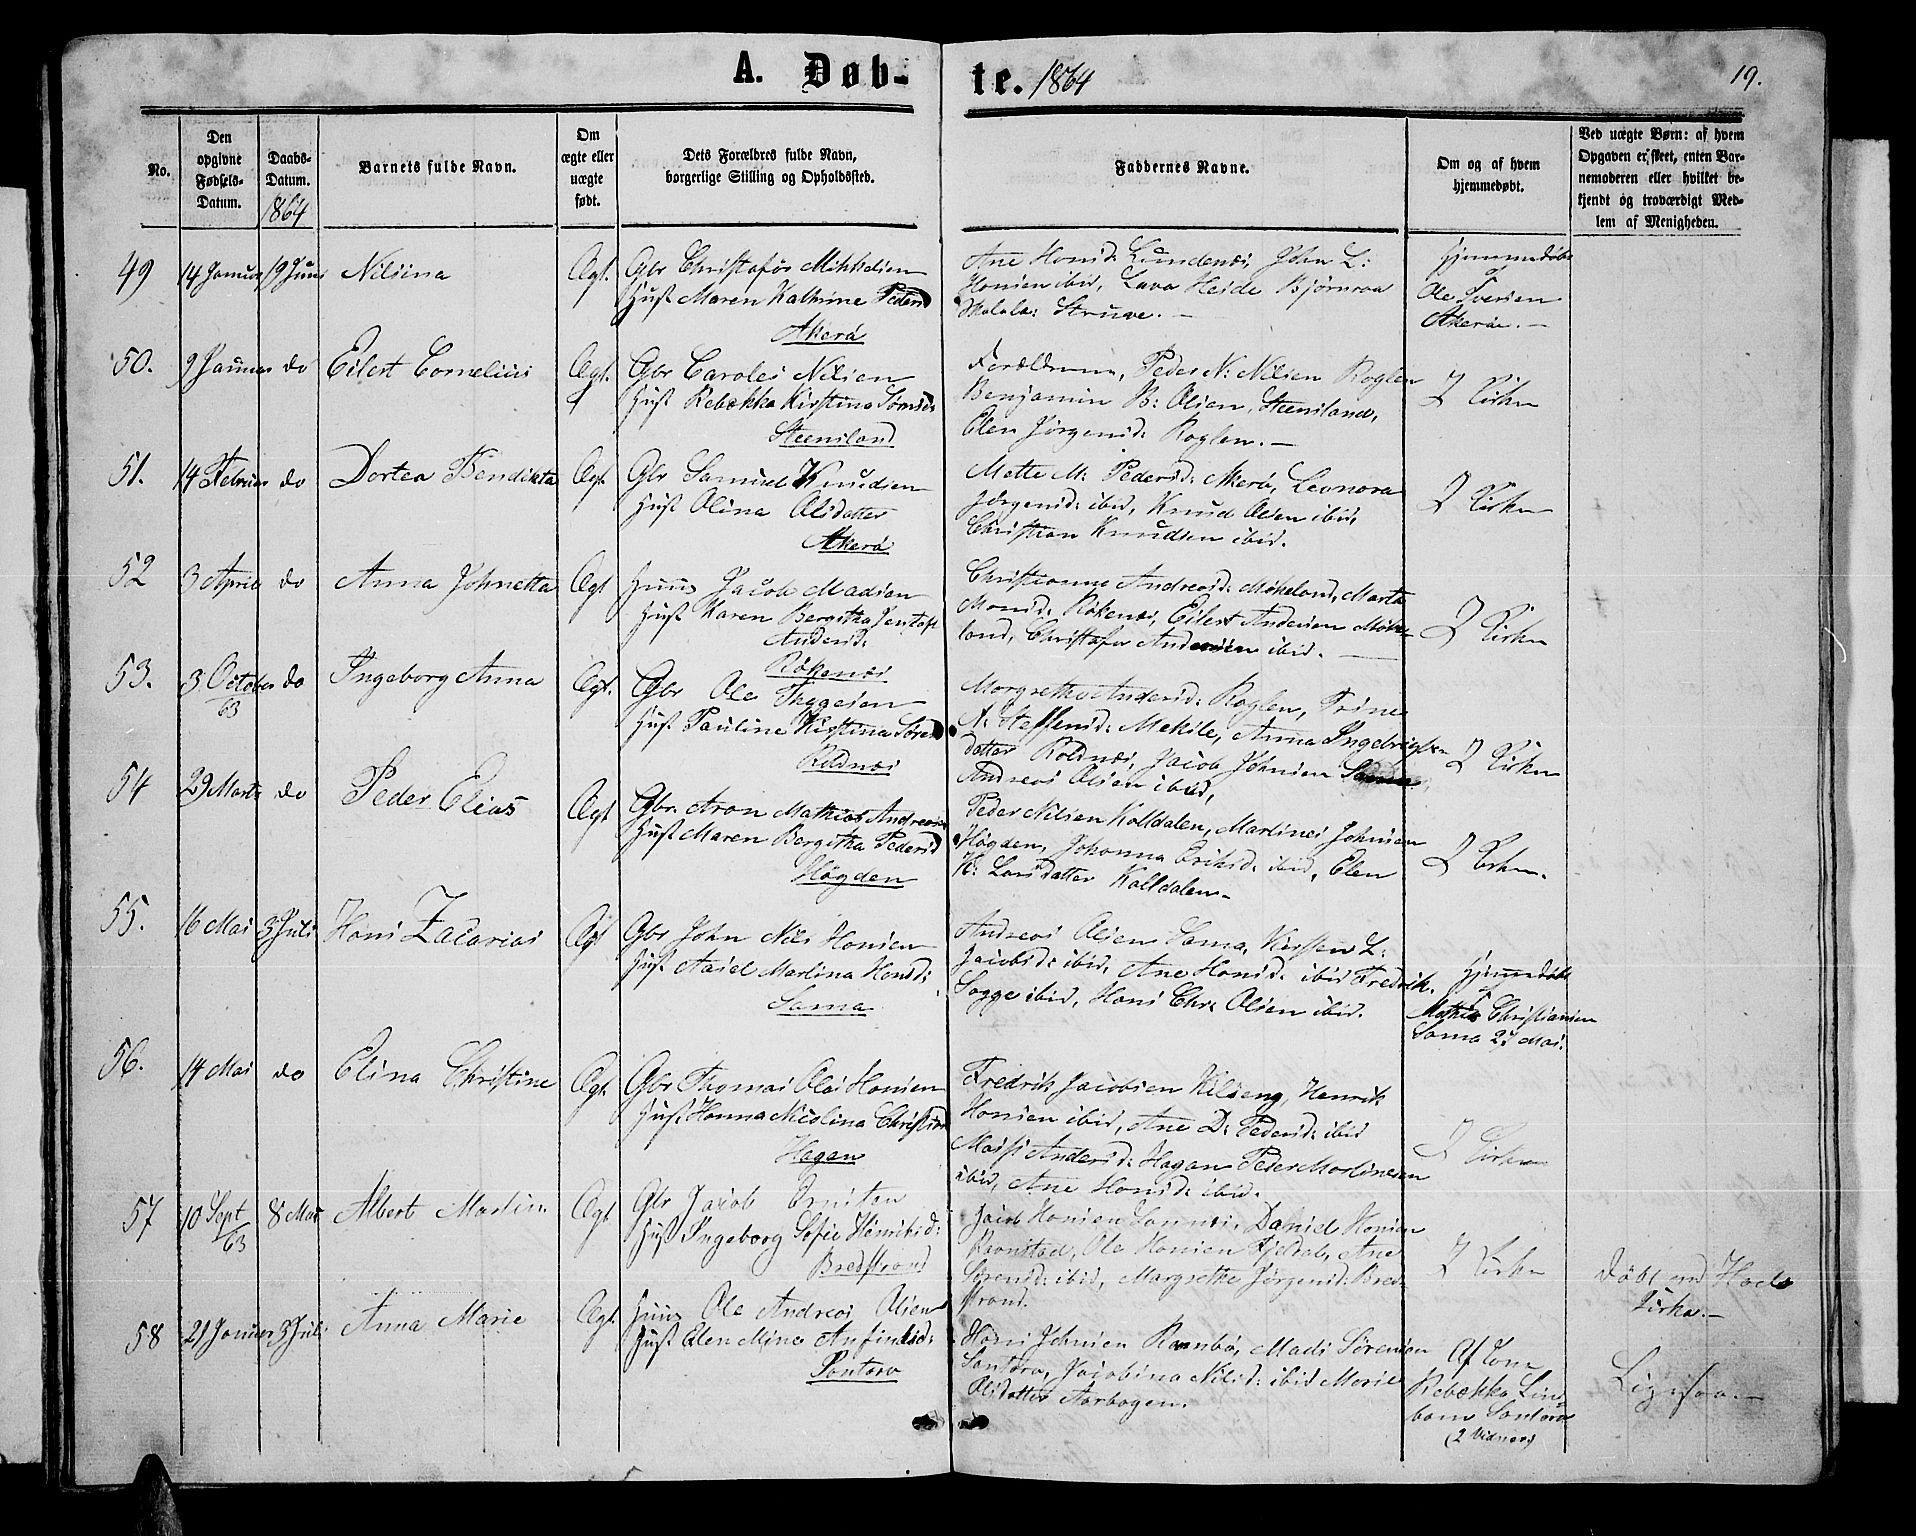 A. Døb-te. 1864
19.
No.
Den opgivne Fødsels-Datum.
Daabs-Datum. 1864
Barnets fulde Navn.
Om ægte eller uægte født.
Dets Forældres fulde Navn, borgerlige Stilling og Opholdssted.
Faddernes Navne.
Om og af hvem hjemmedøbt.
Ved uægte Børn: af hvem Opgaven er skeet, enten Barnemoderen eller hvilket bekjendt og troværdigt Medlem af Menigheden.
49 14 Januar 19 Juni Nilsina Ægt.
Gbr Christofor Mikkelsen
Hust Maren Kathrine Peders
Akerö
Ane Hansd: Lundenæs, John L:
Hansen ibid, Lava Heide Bjørnraa
Malala: Struve. —
Hjemmedøbt
af
Ole Iversen
Akeröe. —
50. 9 Januar do Eilert Cornelius Ægt.
Gbr Caroles Nilsen
Hust Rebækka Kirstina
Steensland
Forældrene, Peder N: Nilsen Roglen
Benjamin B: Olsen, Steensland,
Elen Jørgensd: Roglen. —
I Kirken
51. 14 Februar do Dortea Bendikta Ægt
Gbr Samuel Knudsen
Hust Olina Olsdatter
Akerö
Mette M: Pedersd: Akerö, Leonora
Jørgensd: ibid, Knud Olsen ibid,
Christian Knudsen ibid.
I Kirken
52 3 April do Anna Johnetta Ægt
Huus Jacob Madsen
Hust Karen Bergitha
Andersd:
Rökenæs
Christianna Andreasd: Møkeland, Marta
Monsd: Rökenæs, Eilert Andersen Møke-
land, Christofer Andersen ibid. —
I Kirken
53. 3 October/63 do Ingeborg Anna Ægt.
Gbr Ole Thygesen
Hust Pauline Kirstina Søren
Roldnæs
Margrethe Andersd: Roglen, Trine
A: Steffensd: Mekile, Anna Ingebrigts-
datter Roldnæs, Jacob Johnsen Sama
Andreas Olsen ibid,
I Kirken
54 29 Marts do Peder Elias Ægt
Gbr. Aron Mathias Andreasen
Hust Maren Bergitha Pedersd
Högden
Peder Nilsen Kolldalen, Martines Johnsen
Högden, Johanna Eriksd: ibid, Elen
K: Larsdatter Kolldalen. —
I Kirken.
55. 16 Mai 3 Juli Hans Zacarias Ægt
Gbr John Nils Hansen
Hust Aasel Martina Hansd:
Sama
Andreas Olsen Sama, Kirsten L:
Jacobsd: ibid, Ane Hansd: ibid Fredrik
Sogge ibid, Hans Chr: Olsen ibid.
Hjemmedøbt
af
Mathis Christiansen
Sama 27 Mai.
56. 14 Mai do Elina Christine Ægt.
Gbr Thomas Olai Hansen
Hust Hanna Nicolina Christian
Hagan
Fredrik Jacobsen Kilseng, Henrik
Hansen ibid, Ane D: Pedersd: ibid
Andersd: Hagan Peder Martinesen
ibid, Ane Hansd: ibid.
I Kirken
57 10 Sept/63 8 Mai Albert Martin Ægt
Gbr Jacob
Hust Ingeborg Sofie Henriksd:
Bredstrand
Jacob Hansen Sannæs, Daniel Hansen
Ravnstad, Ole Hansen Fjeldal, Ane
Sørensd: ibid, Margrethe Jørgensd: Bred-
strand.
I Kirken
Døbt ved Hads
Kirke. —
58 21 Januar 3 Juli Anna Marie Ægt.
Huus Ole Andreas Olsen
Hust Elen Mina Anfindsd:
Santora
Hans Johnsen Rambø, Mads Sørensen
Santora, Jacobina Nilsd: ibid Marie
Olsdatter Aarbogen.
Af Kone
Rebækka
Santora
(2 Vidner)